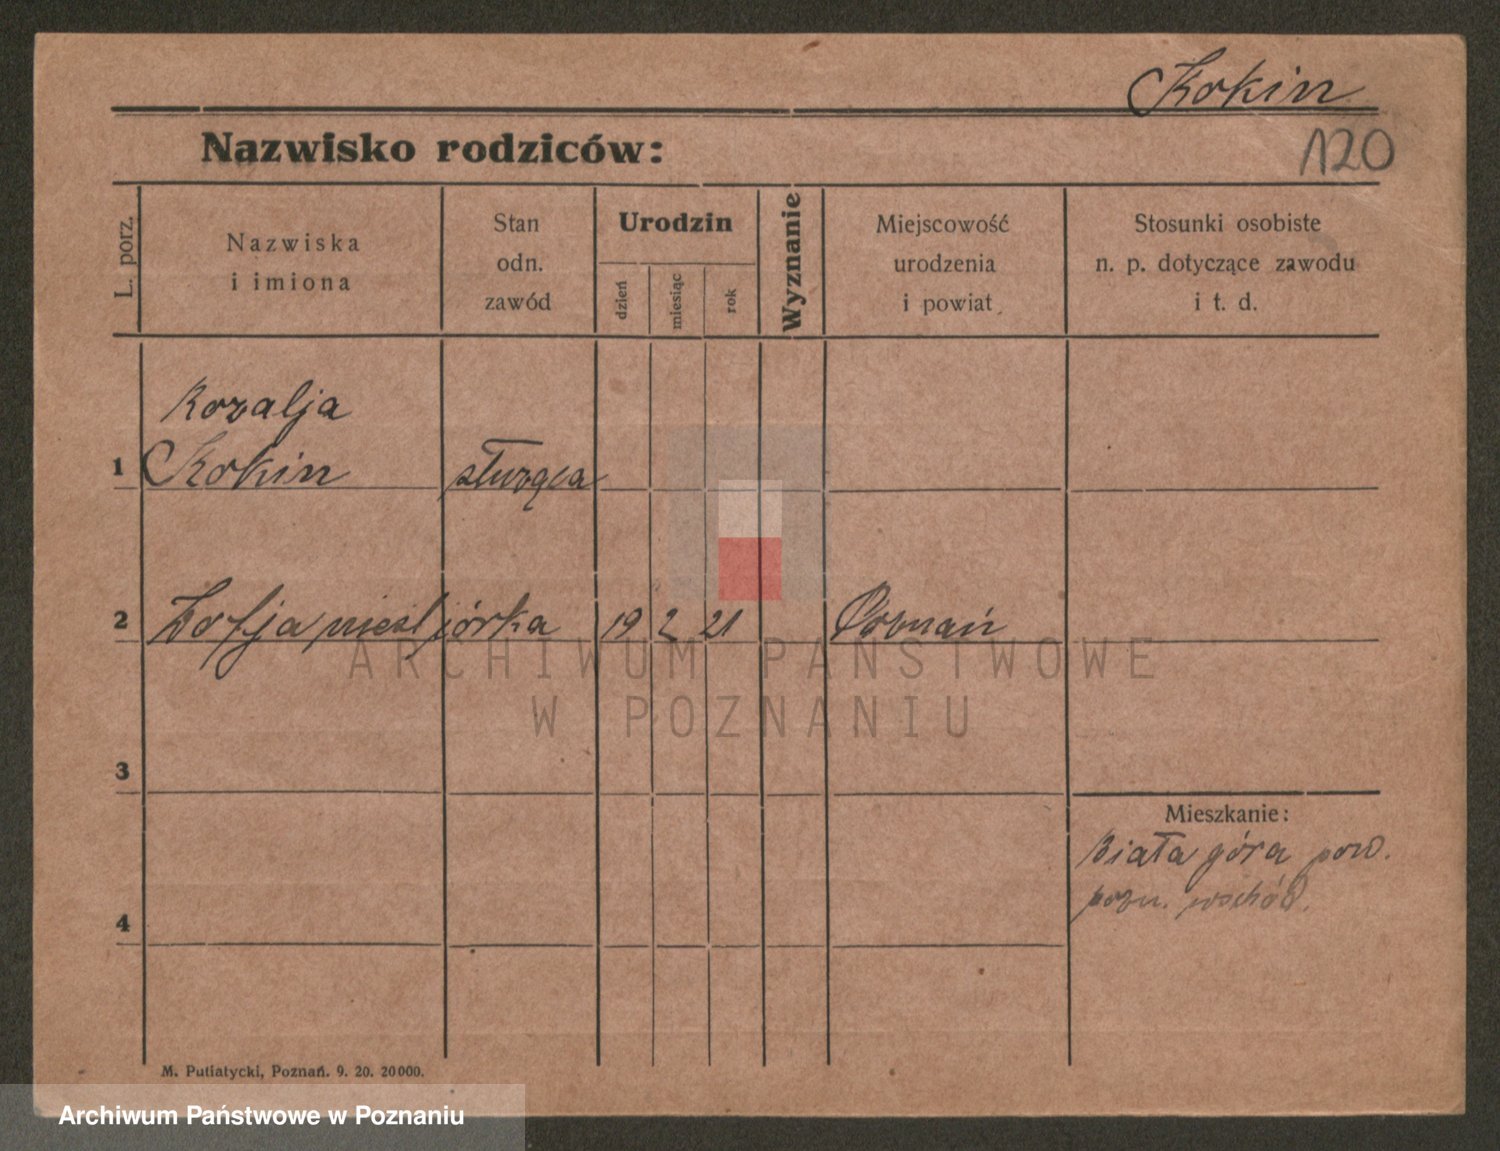 Kokin
Nazwisko rodziców:
120
L. porz.
Nazwiska
i imiona
Stan
odn.
zawód
Urodzin
dzień
miesiąc
rok
Wyznanie
Miejscowość
urodzenia
i powiat
Stosunki osobiste
n. p. dotyczące zawodu
i t. d.
Rozalja
1 Kokin służąca
2 Zofja nieśl. córka 19 2 21 Poznań
ARCHIWUM PAŃSTWOWE
W POZNANIU
3
Mieszkanie:
Biała góra pow.
pozn. wschód.
4
M. Putiatycki, Poznań. 9. 20. 20000.
Archiwum Państwowe w Poznaniu